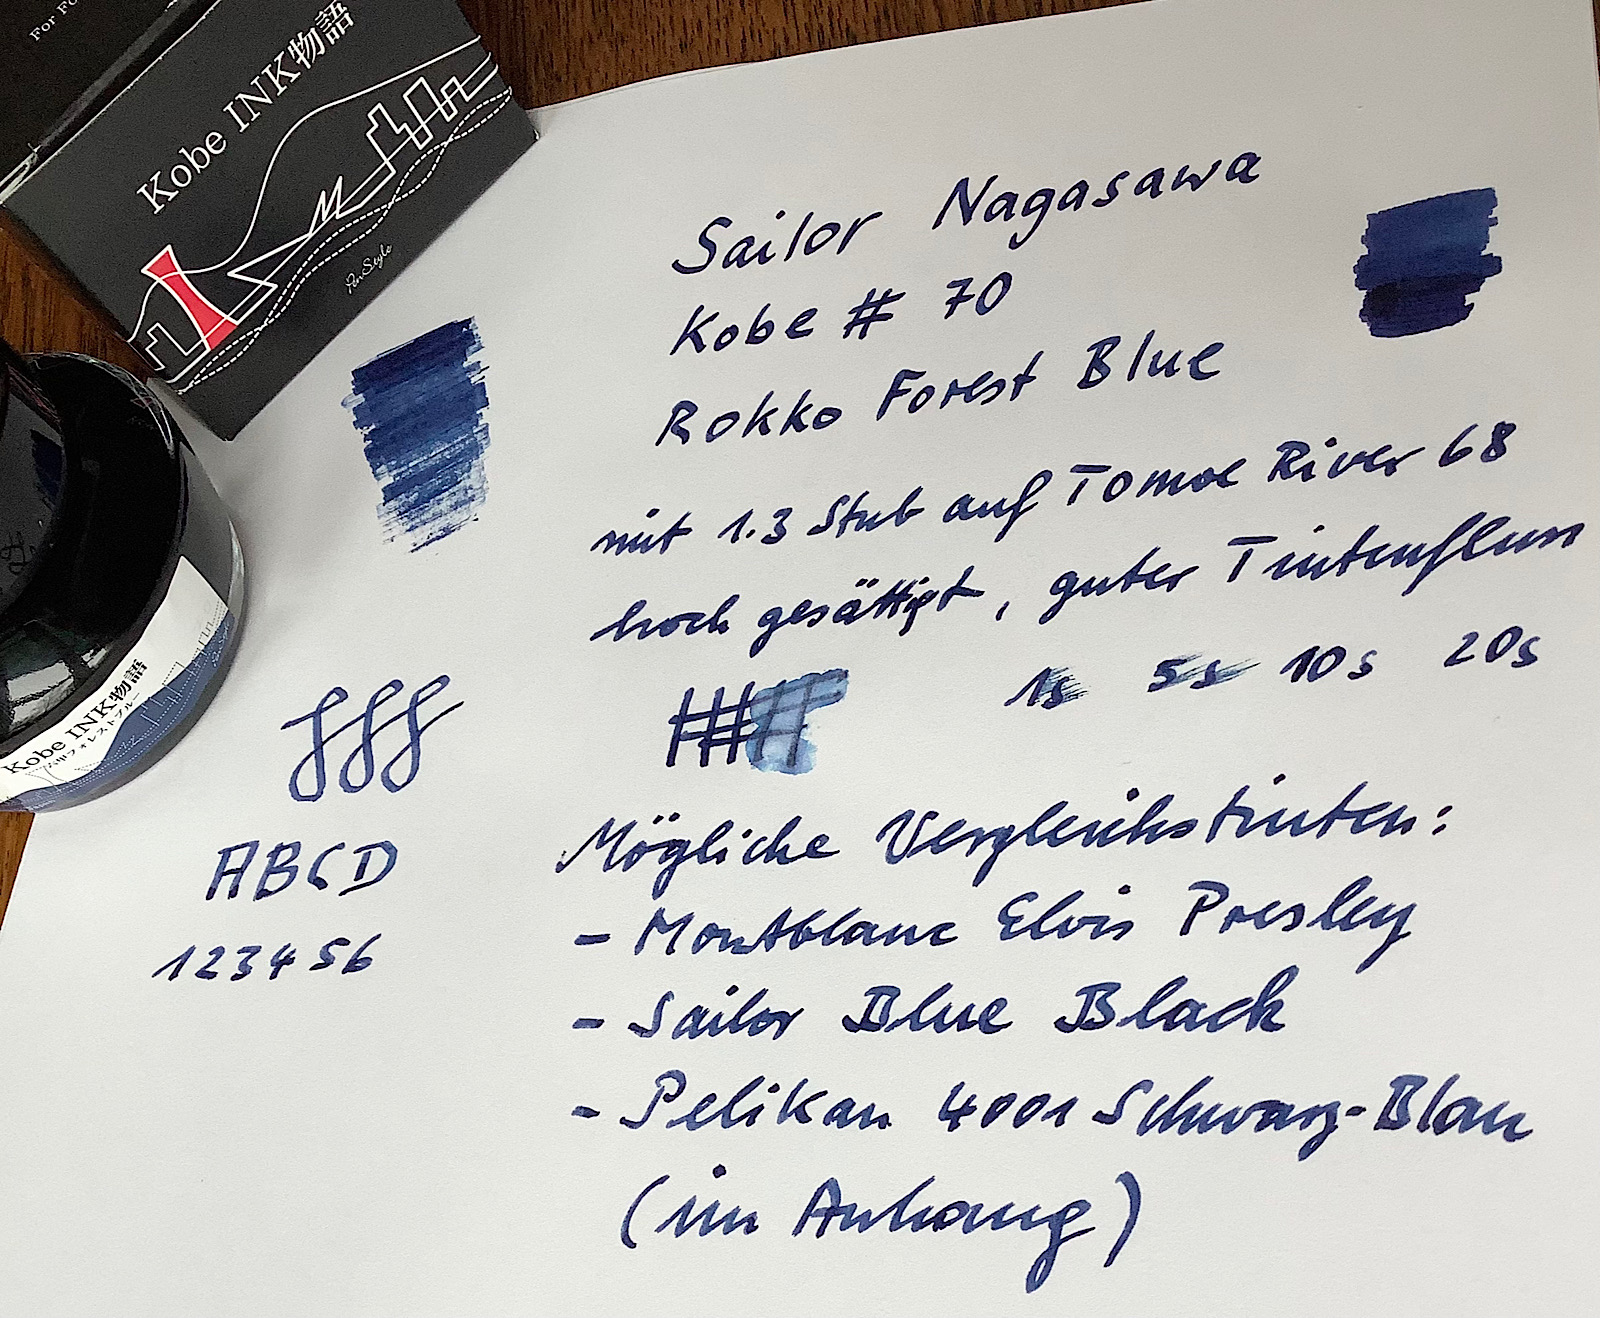 For Fo
Kobe INK物語
PenStyle
Sailor Nagasawa
Kobe # 70
Rokko Forest Blue
mit 1.3 Stub auf Tomoe River 68
hoch gesättigt, guter Tintenfluss
1s 5s 10s 20s
Kobe INK物語
六甲フォレストブルー
ABCD
123456
Mögliche Vergleichstinten:
- Montblanc Elvis Presley
- Sailor Blue Black
- Pelikan 4001 Schwarz-Blau
(im Anhang)